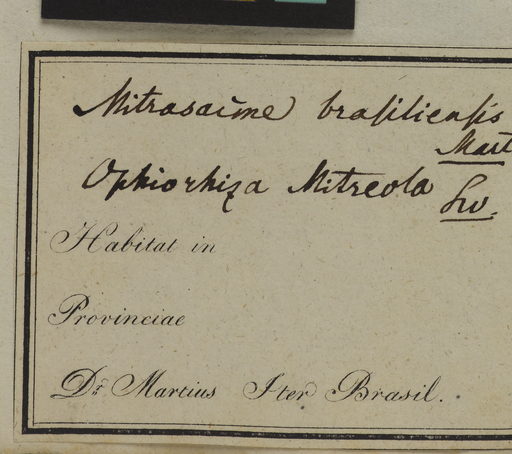 Mitrasacme brasiliensis
Mart
Ophiorhiza Mitreola
Sw.
Habitat in
Provinciae
Dr. Martius Iter Brasil.